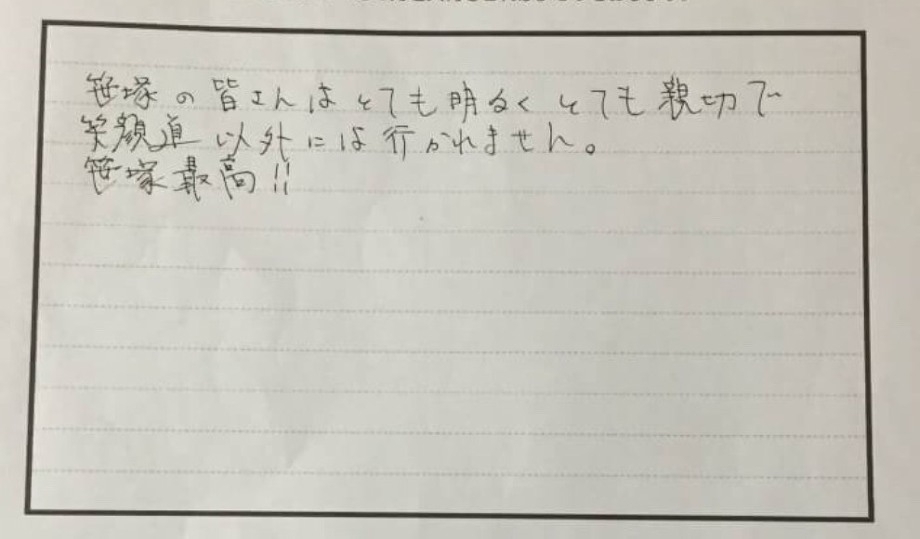 笹塚の皆さんはとても明るくとても親切で
笑顔道以外には行かれません。
笹塚最高!!